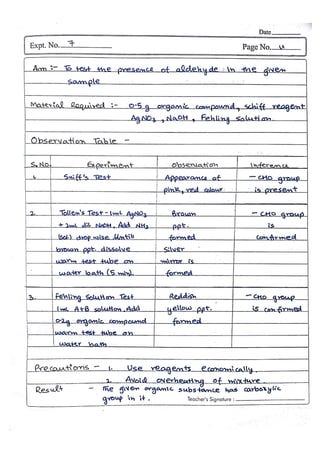 Date
Expt. No. 7
Page No. 11
Aim :- To test the presence of aldehyde in the given
sample
Material Required :- 0.5 g organic compound, schiff reagent
AgNO3, NaOH, Fehling solution
Observation Table -
S.No. Experiment Observation Inference
1. Sniff's Test Appearance of - CHO group
pink, red colour is present
2. Tollen's Test - 1ml AgNO3 Brown - CHO group
+ 2ml NaOH, Add NH3 ppt. is
drop wise Until formed confirmed
brown ppt. dissolve Silver
warm test tube on mirror is
water bath (5 min) formed
3. Fehling Solution Test Reddish - CHO group
1ml A+B solution, Add yellow ppt. is confirmed
0.2g organic compound formed
warm test tube on
water bath
Precautions - 1. Use reagents economically.
2. Avoid overheating of mixture
Result - The given organic substance has carboxylic
group in it.
Teacher's Signature :